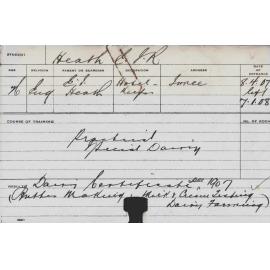 STUDENT Heath E J R
AGE RELIGION PARENT OR GUARDIAN OCCUPATION ADDRESS DATE OF ENTRANCE
Eng E. J. Heath Hotel Keeper 8.4.07
left
7.1.08
COURSE OF TRAINING
Practical
Special Dairy
RESULTS Dairy Certificate Dec 1907
(Butter Making, Milk & Cream Testing
Dairy Farming